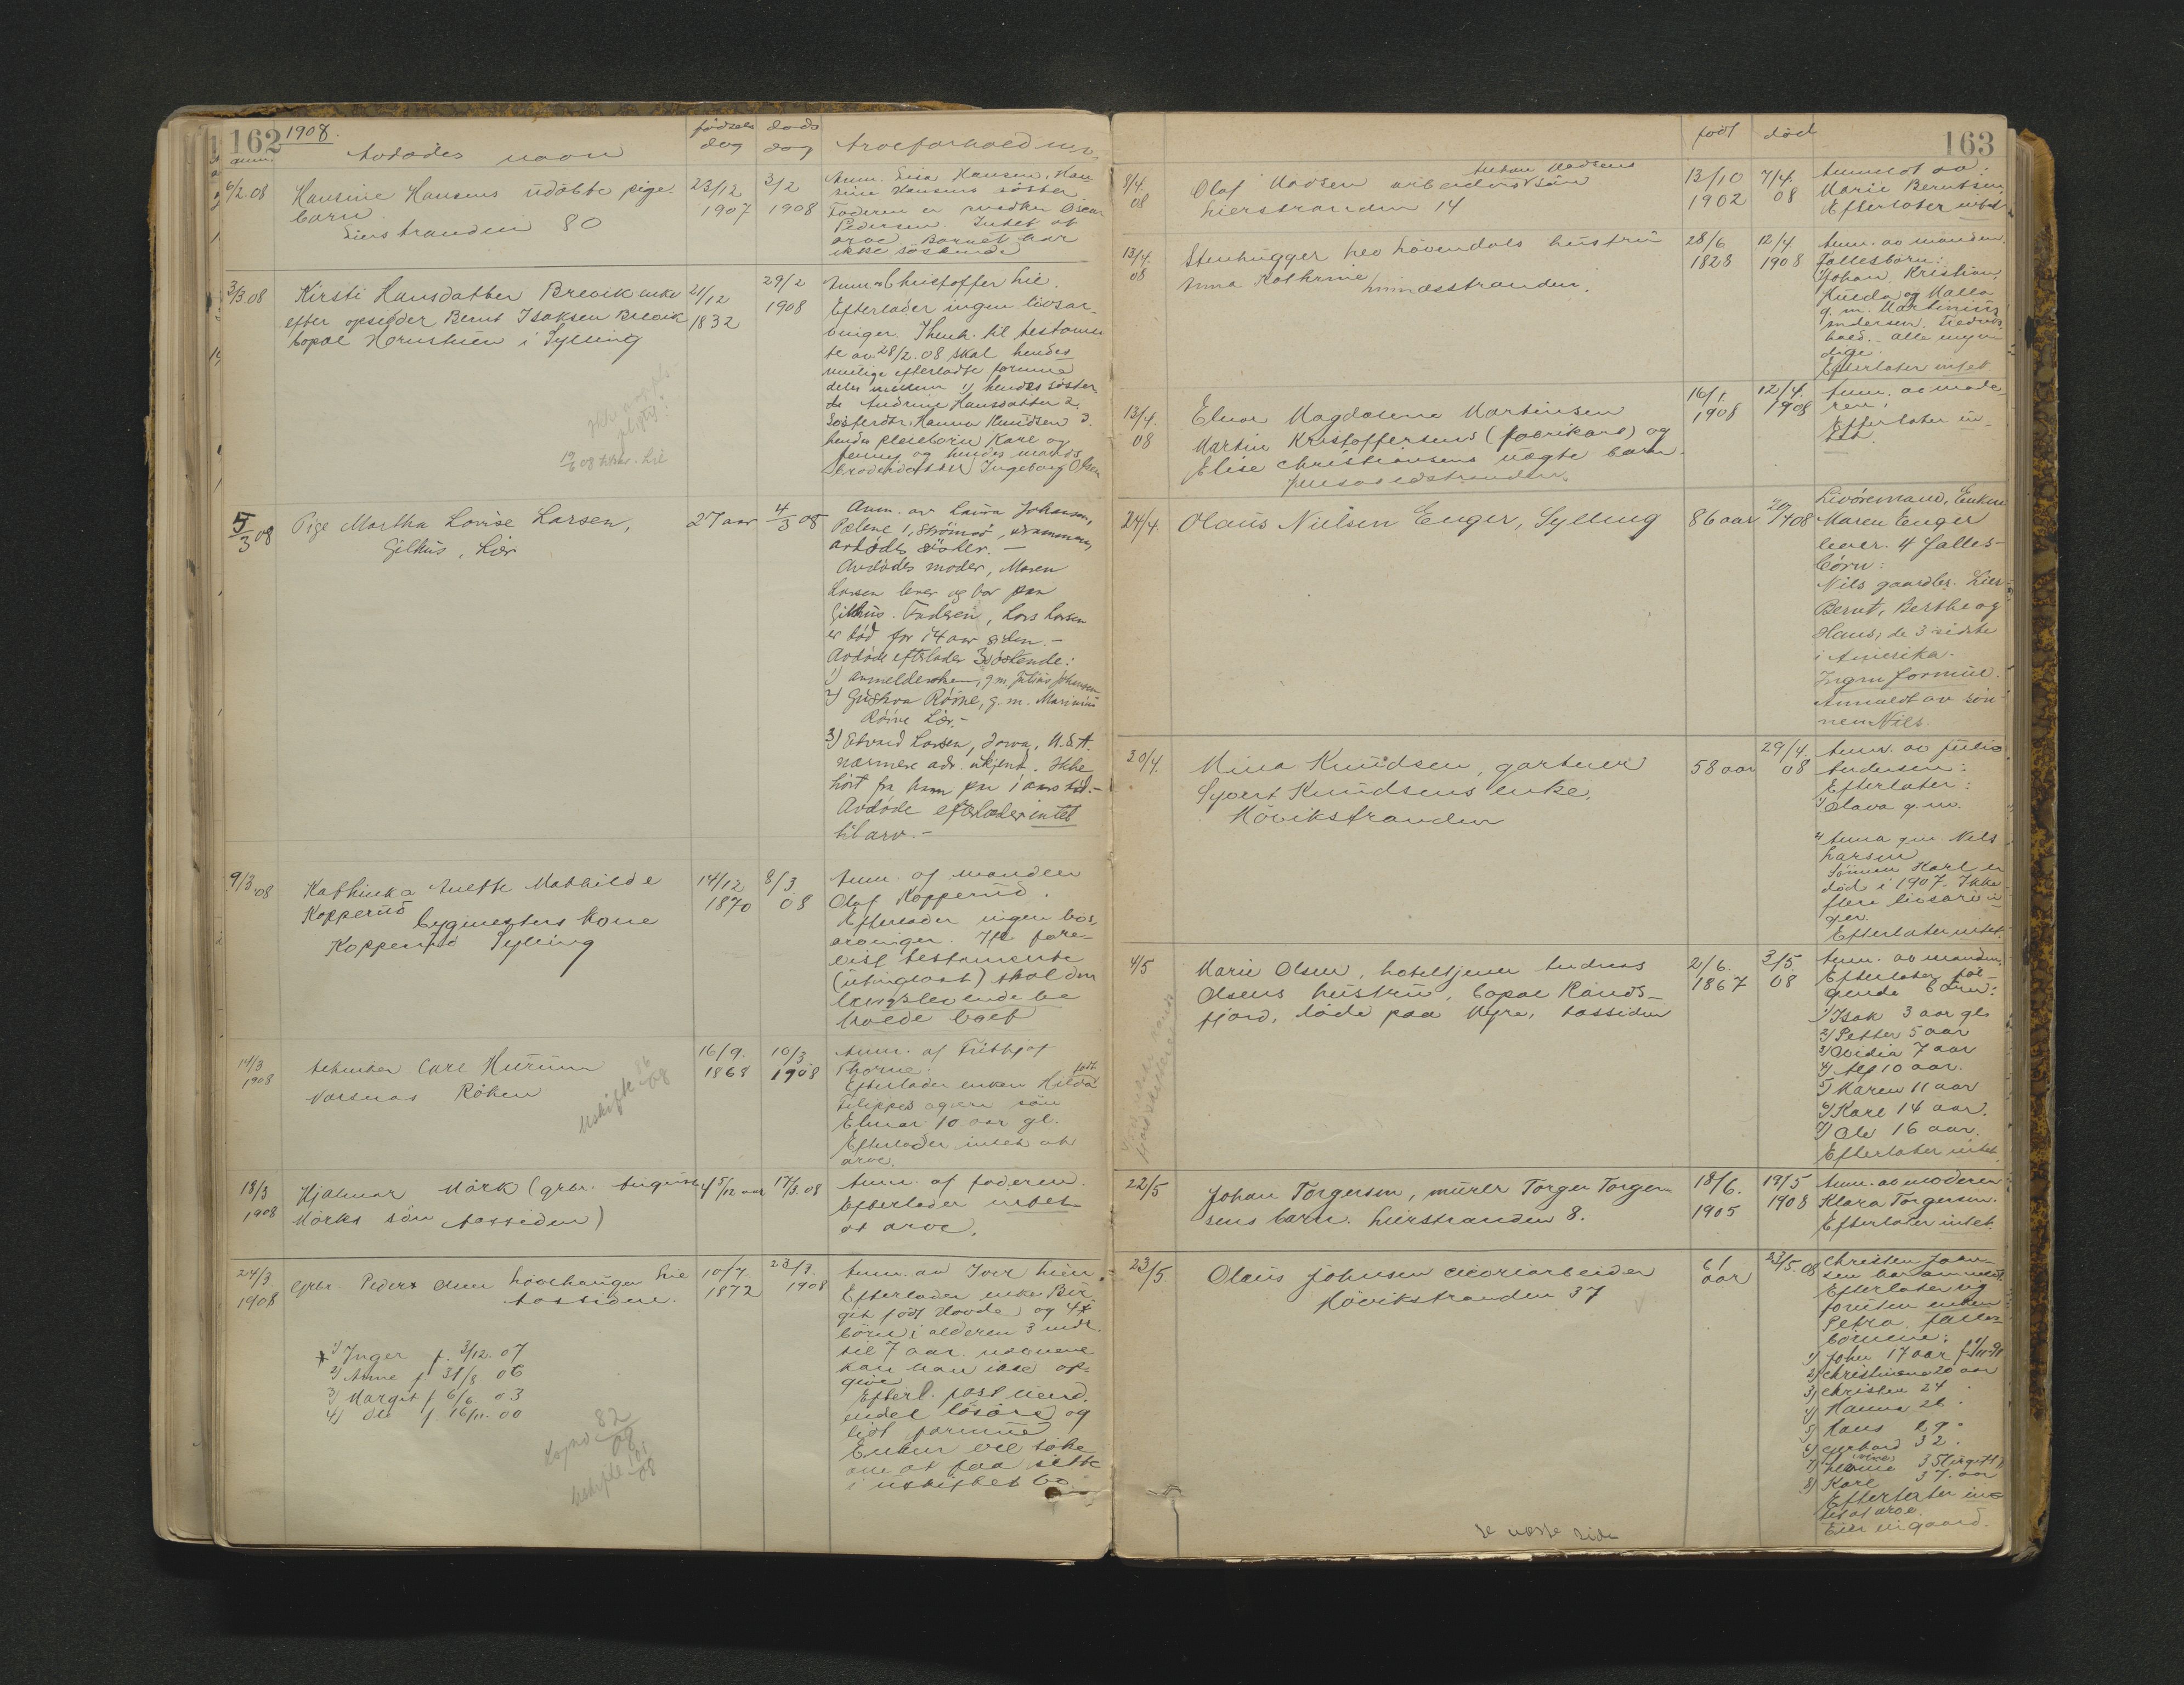 162
1908.
anm.
Avdødes navn
fødsels
dag
døds
dag
Arveforhold m.v.
6/2.08
Hansine Hansens udøbte pige-
barn
Lierstranden 80
23/12
1907
3/2
1908
Anm. Lisa Hansen, Han-
sine Hansens söster
Faderen er snedker Oscar
Pedersen. Intet at
arve. Barnet har
ikke söskende
3/3 08
Kirsti Hansdatter Brevik enke
efter opsidder Bernt Isaksen Brevik
bopæl Hornslien i Sylling
21/12
1832
29/2
1908
Anm. Christoffer Lie.
Efterlader ingen livsar-
vinger. I henh. til testamen
te av 28/2.08 skal hendes
mulige efterladte formue
deles mellem 1) hendes söster
Andrine Hansdatter 2.
Sösterdtr. Hanna Knudsen 3.
hendes pleiebörn Karl og
Jenny og hendes mands
broderdatter Ingeborg Olsen
5/3 08
Pige Martha Lovise Larsen,
Gilhus, Lier
27 aar
4/3 08
Anm. av Laura Johansen,
Pælene 1, Strömsö, Drammen,
avdødes söster. –
Avdødes moder, Maren
Larsen lever og bor paa
Gilhus. Faderen, Lars Larsen
er død for 14 aar siden. –
Avdøde efterlader 3 söskende:
1) anmeldersken, g.m. Julius Johansen
2) Gustava Röine, g.m. Marinius
Röine Lier. –
3) Edvard Larsen, Iowa, U.S.A.
nærmere adr. ukjent. Ikke
hört fra ham paa 1 aars tid. –
Avdøde efterlader intet
til arv. –
9/3.08
Kathinka Anette Mathilde
Kopperud bygmesters kone
Kopperud Sylling
14/12
1870
8/3
08
Anm. af manden
Olaf Kopperud.
Efterlader ingen livs-
arvinger. Ifl. fore-
vist testamente
(utinglæst) skal den
længstlevende be
holde boet
14/3
1908
Carl Hurum
Nærsnes Röken
Uskifte 86/08
16/9.
1868
10/3
1908
Anm. af Frithjof
Thorne.
Efterlader enken Hilda født
Filippes og en sön
Einar 10 aar gl.
Efterlader intet at
arve.
18/3
1908
Hjalmar Mörk (grbr. August
Mörks sön Tossiden)
4 5/12 aar
17/3.08
Anm. af faderen.
Efterlader intet
at arve.
24/3
1908
Grbr. Peder Olsen Lövehaugen Lie
Tossiden.
10/7.
1872
23/3.
1908
Anm. av Iver Lien.
Efterlader enke Bir-
git født Hovde og 4 x
börn i alderen 3 mdr.
til 7 aar. navnene
kan han ikke op-
give
Efterl. fast eiend.
endel lösöre og
lidt formue
Enken vil söke
om at faa sitte
i uskiftet bo
x 1) Inger f. 3/12. 07
2) Anne f 31/8 06
3) Margit f 6/6 03
4) Ole f 16/11. 00
82/08
163
født
død
8/4.
08
Olaf Madsen arbeider Anton Madsens sön
Lierstranden 14
13/10
1902
7/4.
08
Anmeldt av:
Marie Berntsen
Efterlater intet
13/4.
08
Stenhugger Leo Lövendals hustru
Anna Kathrine
28/6
1828
12/4.
1908
Anm. av manden.
Fællesbörn:
Johan, Kristian,
Hulda og Valla
g.m. Martinius
Andersen. Fredriks-
hald. – alle myn
dige.
Efterlater intet
13/4.
08
Elnar Magdalena Martinsen
Martin Kristoffersens (fabrikarb) og
Elise Christiansens uægte barn.
16/1.
1908
12/4.
1908
Anm. av mode
ren.
Efterlater in-
tet.
24/4.
Olaus Nielsen Enger, Sylling
86 aar
20/4 08
Livöremand, Enken
Maren Enger
lever. 4 fælles-
börn:
Nils gaardbr. Lier
Bernt, Berthe og
Hans, de 3 sidste
i Amerika.
Ingen formue.
Anmeldt av sön-
nen Nils.
30/4.
Mina Knudsen, gartner
Syvert Knudsens enke,
Hövikstranden
58 aar
29/4.
08
Anm. av Julius
Andersen:
Efterlater:
1) Olava g.m.
2) Anna g.m. Nils
Larsen
Sönnen Karl er
död i 1907. Ikke
flere livsarvin-
ger.
Efterlater intet.
4/5
Marie Olsen, hoteltjener Andreas
Olsens hustru, bopæl Rands-
fjord, döde paa Myre, Tossiden
2/6.
1867
3/5
08
Anm. av manden,
Efterlater föl-
gende börn:
1) Isak 3 aar gl.
2) Petter 5 aar
3) Ovidia 7 aar
4) Alf 10 aar.
5) Maren 11 aar
6) Karl 14 aar.
7) Ole 16 aar.
Efterlater intet.
22/5
Johan Torgersen, murer Torger Torger-
sens barn. Lierstranden 8.
18/6.
1905
19/5
1908
Anm. av moderen
Klara Torgersen.
Efterlater intet.
23/5.
Olaus Johnsen cicoriarbeider
Hövikstranden 37
61
aar
23/5.08
Christen Johan-
sen har anmeldt
Efterlater sig
foruten enken
Petra, fælles
börnene:
1) John 17 aar
2) Christiane 20 aar
3) Christen 24
4) Hanna 26
5) Hans 29
6) Gerhard 32
7) 35 (ugift)
8) Karl 37 aar
Efterlater in-
tet at arve.
Eier en gaard.
Se næste side